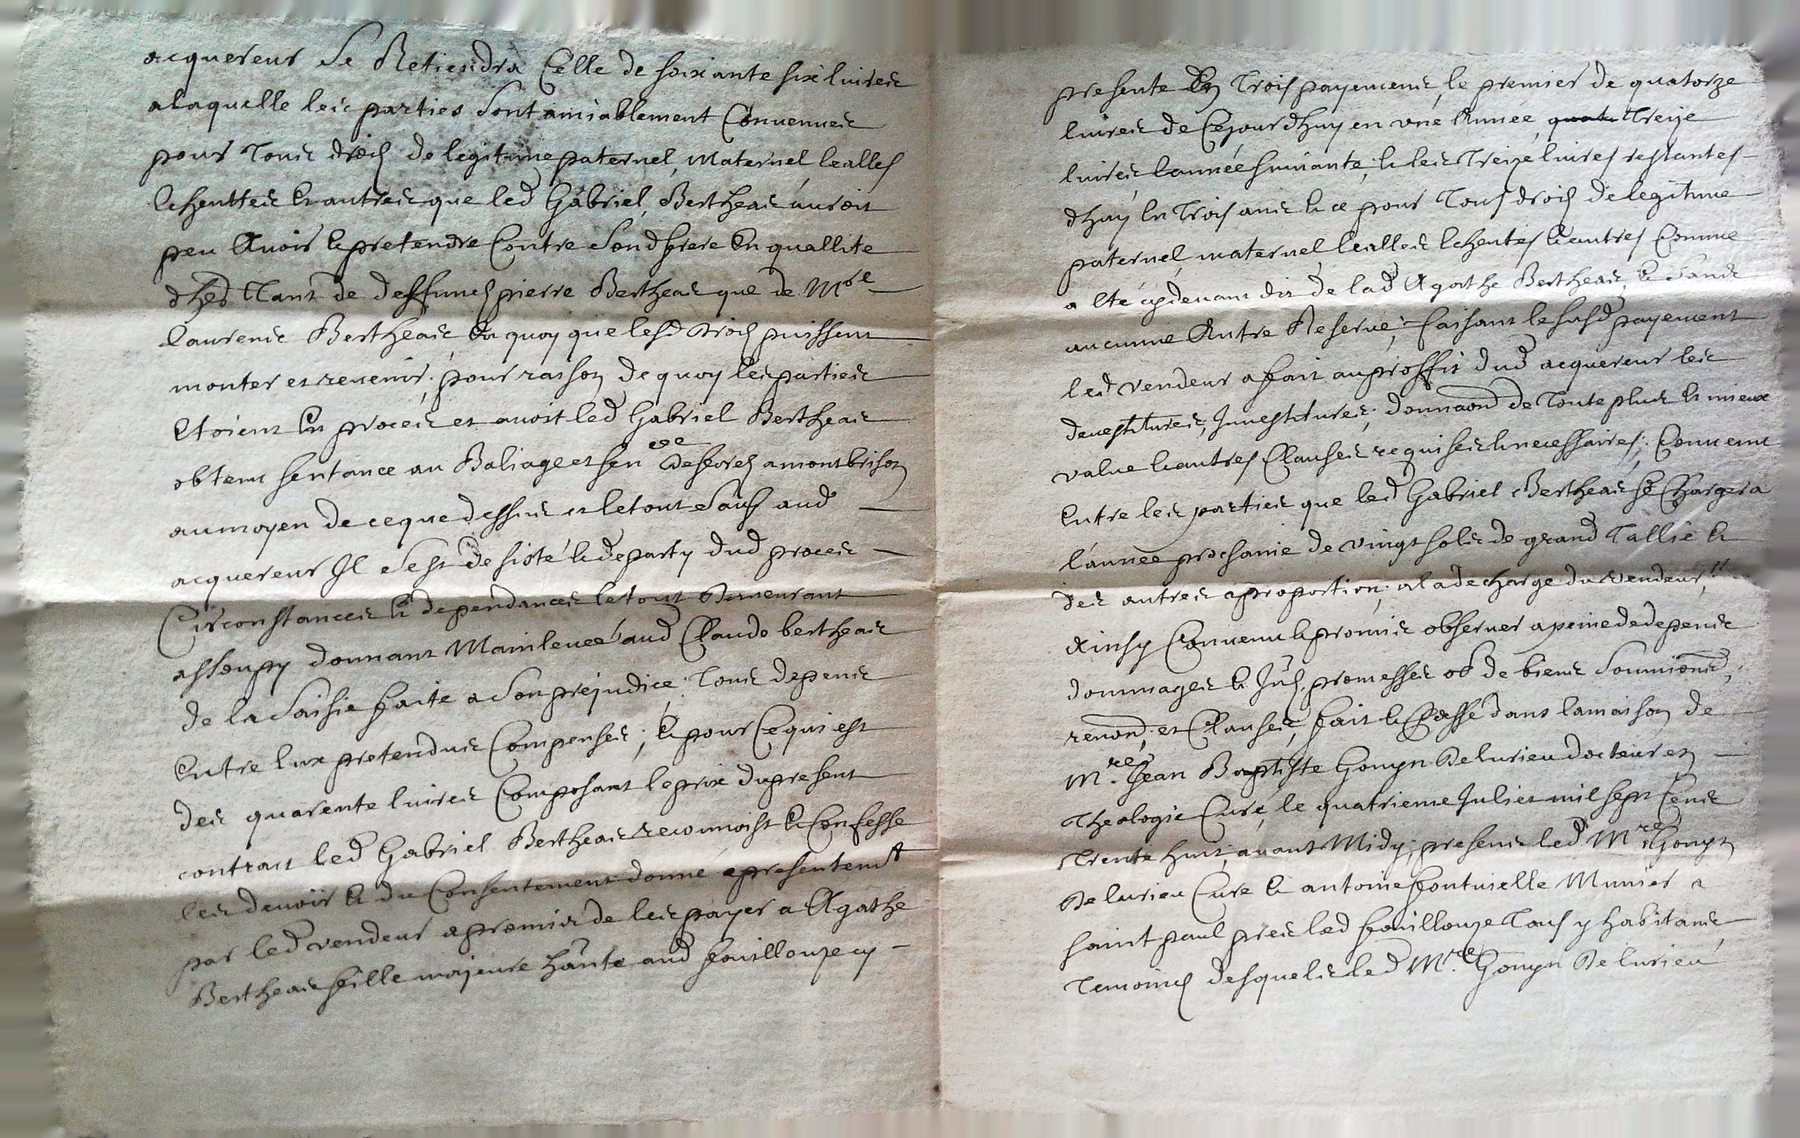 acquereur se Retiendra Celle de soixante six livres
a laquelle les parties sont amiablement Convenues
pour tous droits de legitime paternel, maternel, lealles
echeuttes et autres que led Gabriel Bertheas auroit
peu Avoir et pretendre Contre sond frere En quallite
dhed tant de deffunct pierre Bertheas que de Mre
laurens Bertheas, En quoy que lesd droits puissent
monter et revenir, pour raison de quoy les parties
Etoient En proces et avoit led Gabriel Bertheas
obtenu sentance au Baliage et sen desforetz a montbrison
au moyen de ce que dessus et le tout sauf aud
acquereur Il sest desisté et departy dud proces
Circonstances et dependances le tout Demeurant
assoupy donnant Mainlevée aud Claude bertheas
de la saisie faite a son prejudice; tous depens
Entre Eux pretendus Compenses; et pour Ce qui est
des quarente livres Composant le prix du present
contrat led Gabriel Bertheas reconnoist et Confesse
les devoir et du Consentement donné apresentemt
par led vendeur a promis de les payer a Agathe
Bertheas fille majeure hante aud fouillouze cy
presente En Trois payemens, le premier de quatorze
livres de Cejourdhuy en une Année, Treize
livres l'année suivante, et les Treize livres restantes
dhuy En trois ans et ce pour Tous droits de legitime
paternel, maternel lealles Echeutes et autres Comme
a été cydevant dit de lad Agathe Bertheas, et sans
aucunne Autre Reserve; faisant le susd payement
led vendeur a fait au proffit dud acquereur les
devestitures, Investitures; donnaond de Toute plus et mieux
value et autres Clauses requises et necessaires; Convenu
Entre les parties que led Gabriel Bertheas se Chargera
l'année prochaine de vingt sols de grand Tallie et
des autres a proportion, a la decharge du vendeur;
Ainsy Convenu et promis observer a peine de depens
dommages et Jnts, promesses ob de biens soumiond,
renond, et Clauses, fait et passé dans la maison de
Mre Jean Baptiste Gonyn Delurieu docteur en
Theologie Curé, le quatrieme Juliet mil sept Cens
Trente huit, avant Midy; presens led Mre Gonyn
Delurieu Curé et antoine fontvielle Munier a
saint paul pres lad fouillouze Tous y habitans
Temoins desquels led Mre Gonyn Delurieu